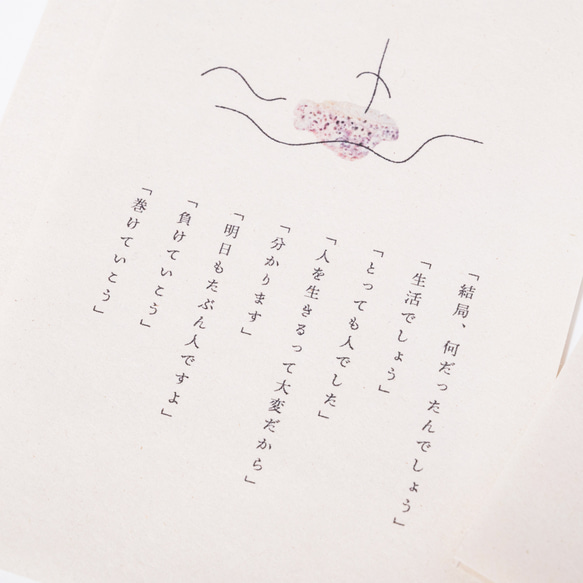 「結局、何だったんでしょう」
「生活でしょう」
「とっても人でした」
「人を生きるって大変だから」
「分かります」
「明日もたぶん人ですよ」
「負けていこう」
「巻けていこう」